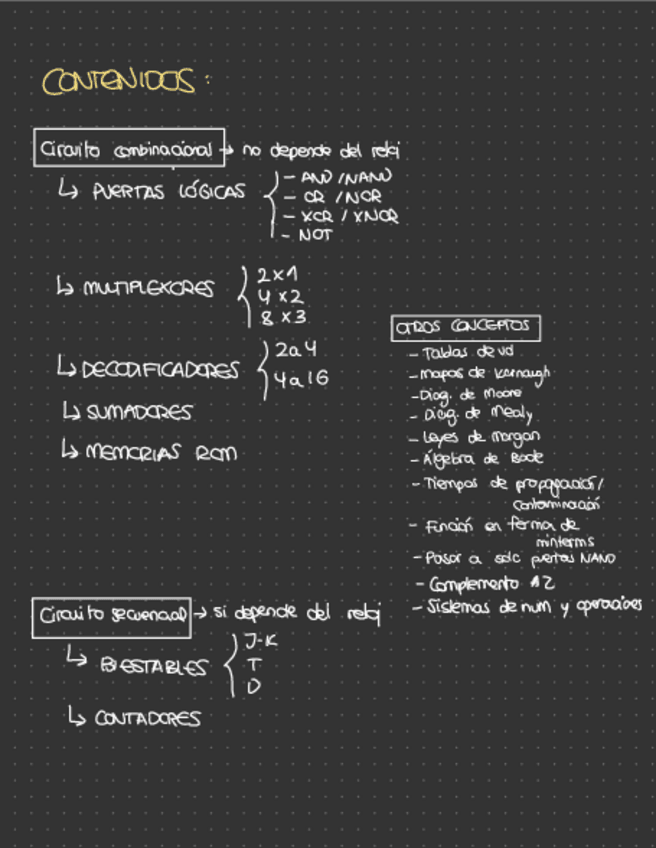 CONTENIDOS:
Circuito combinacional → no depende del reloj
↳ PUERTAS LÓGICAS
- AND / NAND
- OR / NOR
- XOR / XNOR
- NOT
↳ MULTIPLEXORES
2x1
4x2
8x3
↳ DECODIFICADORES
2a4
4a16
↳ SUMADORES
↳ MEMORIAS ROM
OTROS CONCEPTOS
- Tablas de vd
- Mapas de Karnaugh
- Diag. de Moore
- Diag. de Mealy
- Leyes de Morgan
- Álgebra de Boole
- Tiempos de propagación/
contaminación
- Función en forma de
minterms
- Pasar a solo puertas NAND
- Complemento A2
- Sistemas de num y operaciones
Circuito secuencial → si depende del reloj
↳ BIESTABLES
J-K
T
D
↳ CONTADORES